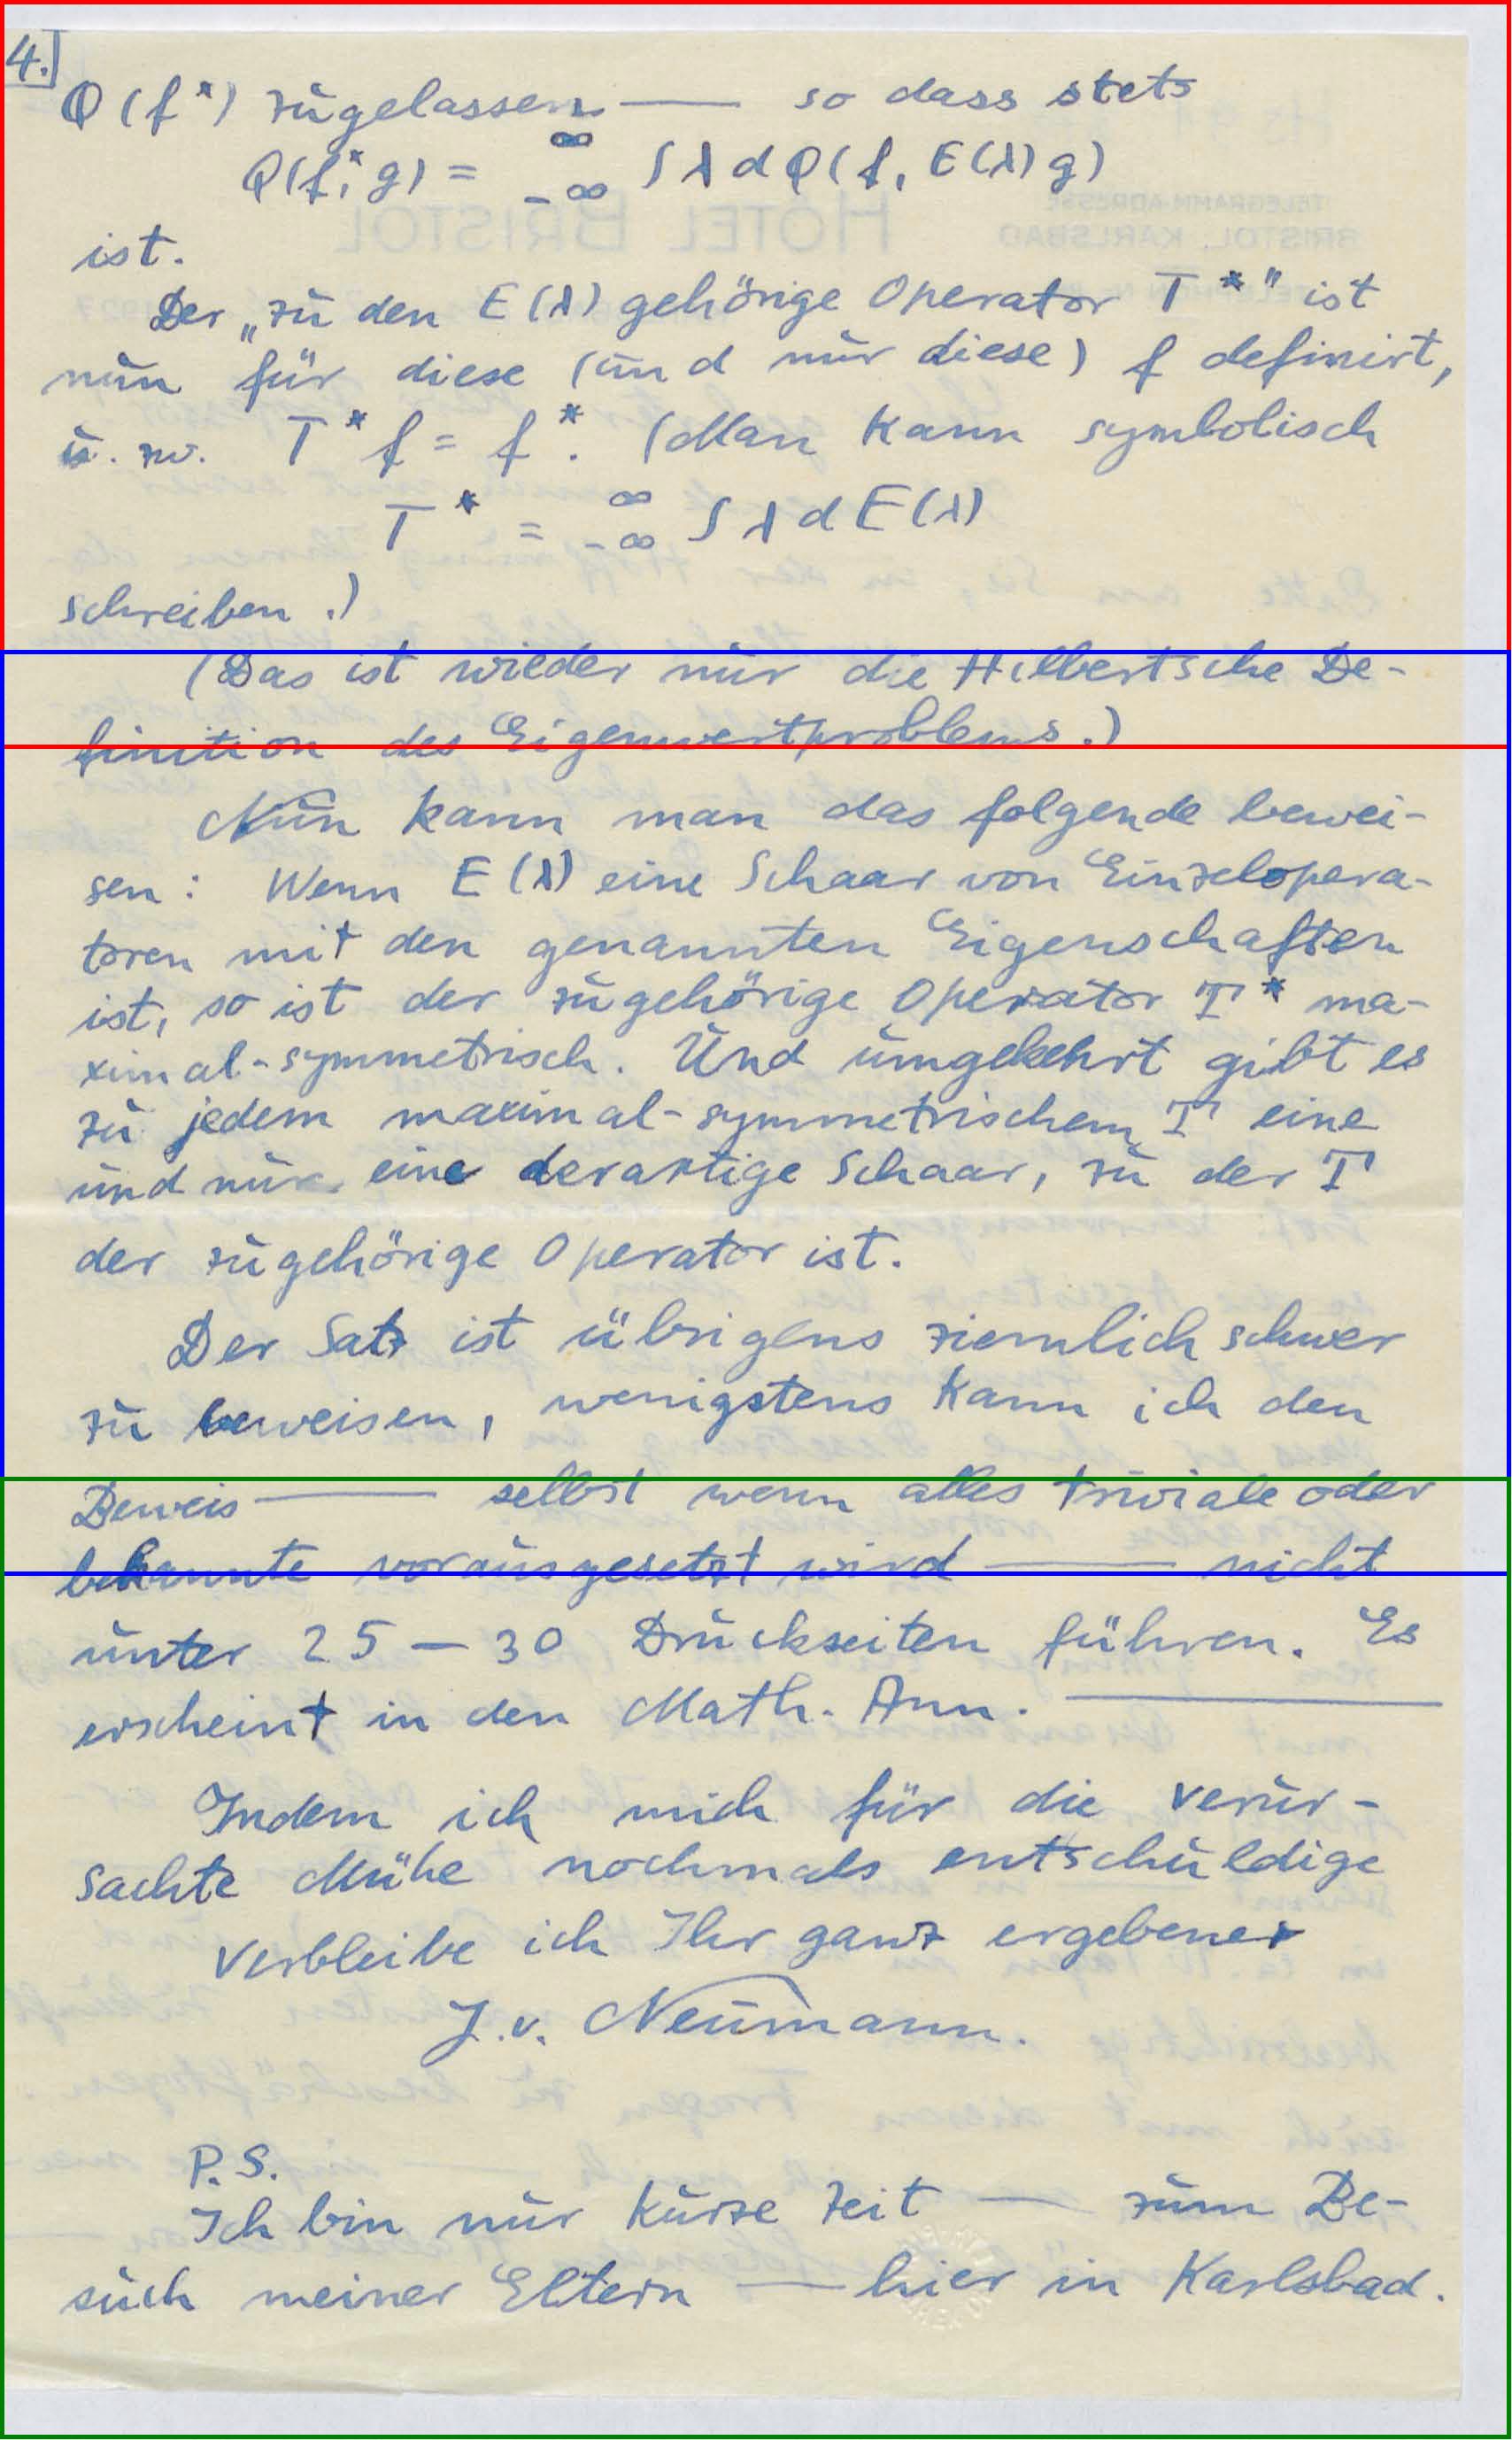 4.
Q(f*) zugelassen — so dass stets
Q(f*, g) = ∞ -∞ ∫ λ d Q(f, E(λ) g)
ist.
Der „zu den E(λ) gehörige Operator T*" ist
nun für diese (und nur diese) f definirt,
u. zw. T* f = f*. (Man kann symbolisch
T* = ∞ -∞ ∫ λ d E(λ)
schreiben.)
(Das ist wieder nur die Hilbertsche De-
finition des Eigenwertproblems.)
Nun kann man das folgende bewei-
sen: Wenn E(λ) eine Schaar von Einzelopera-
toren mit den genannten Eigenschaften
ist, so ist der zugehörige Operator T* ma-
ximal-symmetrisch. Und umgekehrt gibt es
zu jedem maximal-symmetrischem T eine
und nur eine derartige Schaar, zu der T
der zugehörige Operator ist.
Der Satz ist übrigens ziemlich schwer
zu beweisen, wenigstens kann ich den
Beweis — selbst wenn alles triviale oder
bekannte vorausgesetzt wird — nicht
unter 25 — 30 Druckseiten führen. Es
erscheint in den Math. Ann. —
Indem ich mich für die verur-
sachte Mühe nochmals entschuldige
verbleibe ich Ihr ganz ergebener
J. v. Neumann.
P.S.
Ich bin nur kurze Zeit — zum Be-
such meiner Eltern — hier in Karlsbad.
HOTEL BRISTOL
TELEGRAMM-ADRESSE
BRISTOL KARLSBAD